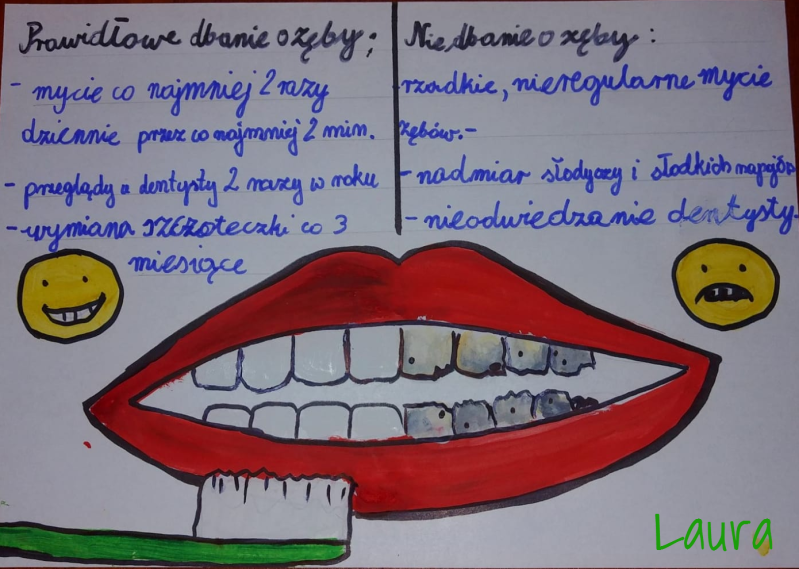 Prawidłowe dbanie o zęby:
- mycie co najmniej 2 razy
dziennie przez co najmniej 2 min.
- przeglądy u dentysty 2 razy w roku
- wymiana szczoteczki co 3
miesiące
Niedbanie o zęby:
- rzadkie, nieregularne mycie
zębów.-
- nadmiar słodyczy i słodkich napojów
- nieodwiedzanie dentysty.
Laura